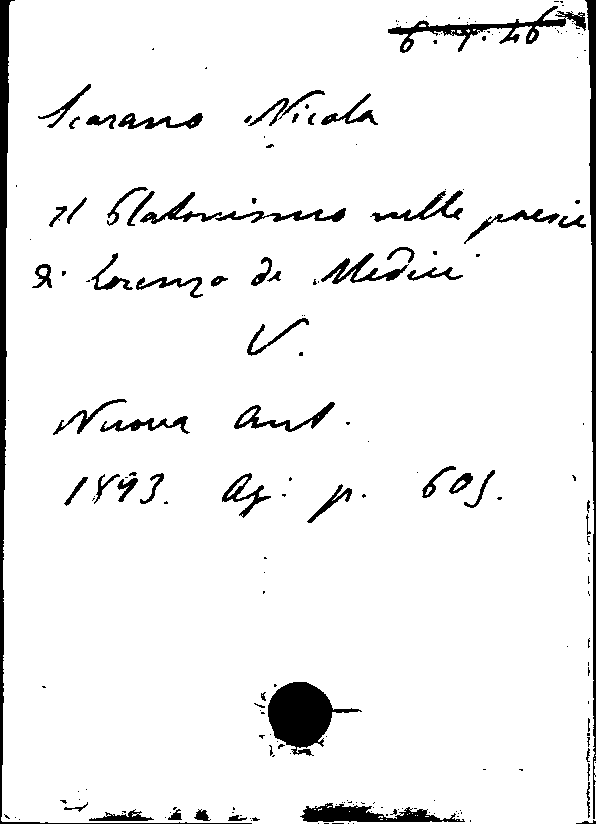 6.7.46
Scarano Nicola
Il Platonismo nelle poesie
di Lorenzo de Medici
V.
Nuova Ant.
1893. Ag: p. 605.